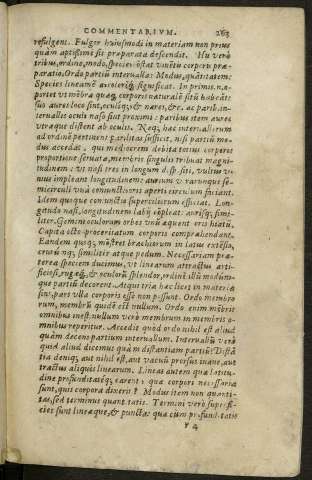 COMMENTARIVM. 263
refulgent. Fulgor huiusmodi in materiam non prius
quàm aptissimè sit præparata descendit. Hu verò
tribus, ordine, modo, specie cōstat viuētis corporis præ-
paratio. Ordo partiū interualla: Modus, quātitatem:
Species lineamēta coloresq́; significat. In primis na
suo aures loco sint, oculiq́; & nares, &c. ac parib. in-
teruallis oculi naso sint proximi: paribus item aures
vtræque distent ab oculis. Neq́; hæc interuallorum
ad ordinē pertinent paritas sufficit, nisi partiū mo-
dus accedat, qui mediocrem debita totius corporis
proportione seruata, membris singulis tribuat magni-
tudinem: vt nasi tres in longum dispositi, vultus vni-
us impleant longitudinem: aurium vtrarunque se-
micirculi vnà coniuncti oris aperti circulum faciant.
Idem quoque coniuncta supercilia efficiat. Lon-
gitudo nasi, longitudinem labij adæquet aurisq́; simi-
liter. Gemini oculorum orbes vnā æquent oris hiatū.
Capita octo proceritatem corporis comprehendant.
Eandem quoq́; brachiorum in latus extēsio,
crurūq́; similiter atque pedum. Necessariam præ-
terea speciem ducimus, vt linearum attractus arti-
ficiosi, rugæq́; & oculorū splendor, ordinē illū modūm-
que partiū decorent. Atqui tria hæc licet in materia
sint, pars vlla corporis esse non possunt. Ordo membro
rum, membrū quidē est nullum. Ordo enim mēbris
omnibus inest. nullum verò membrum in membris o-
mnibus reperitur. Accedit quòd ordo nihil est aliud
quàm decens partium interuallum. Interuallū verò
quid aliud dicemus quàm distantiam partiū: Distā-
tia deniq́; aut nihil est, aut vacuū prorsus inane, aut
tractus aliquis linearum. Lineas autem quæ latitu-
dine profunditatéq́; carent, quæ corpori necessaria
sunt, quis corpora dixerit? Modus item non quanti-
tas, sed terminus quantitatis. Termini verò superfi-
cies sunt lineæque, & puncta: quæ cùm profunditatis